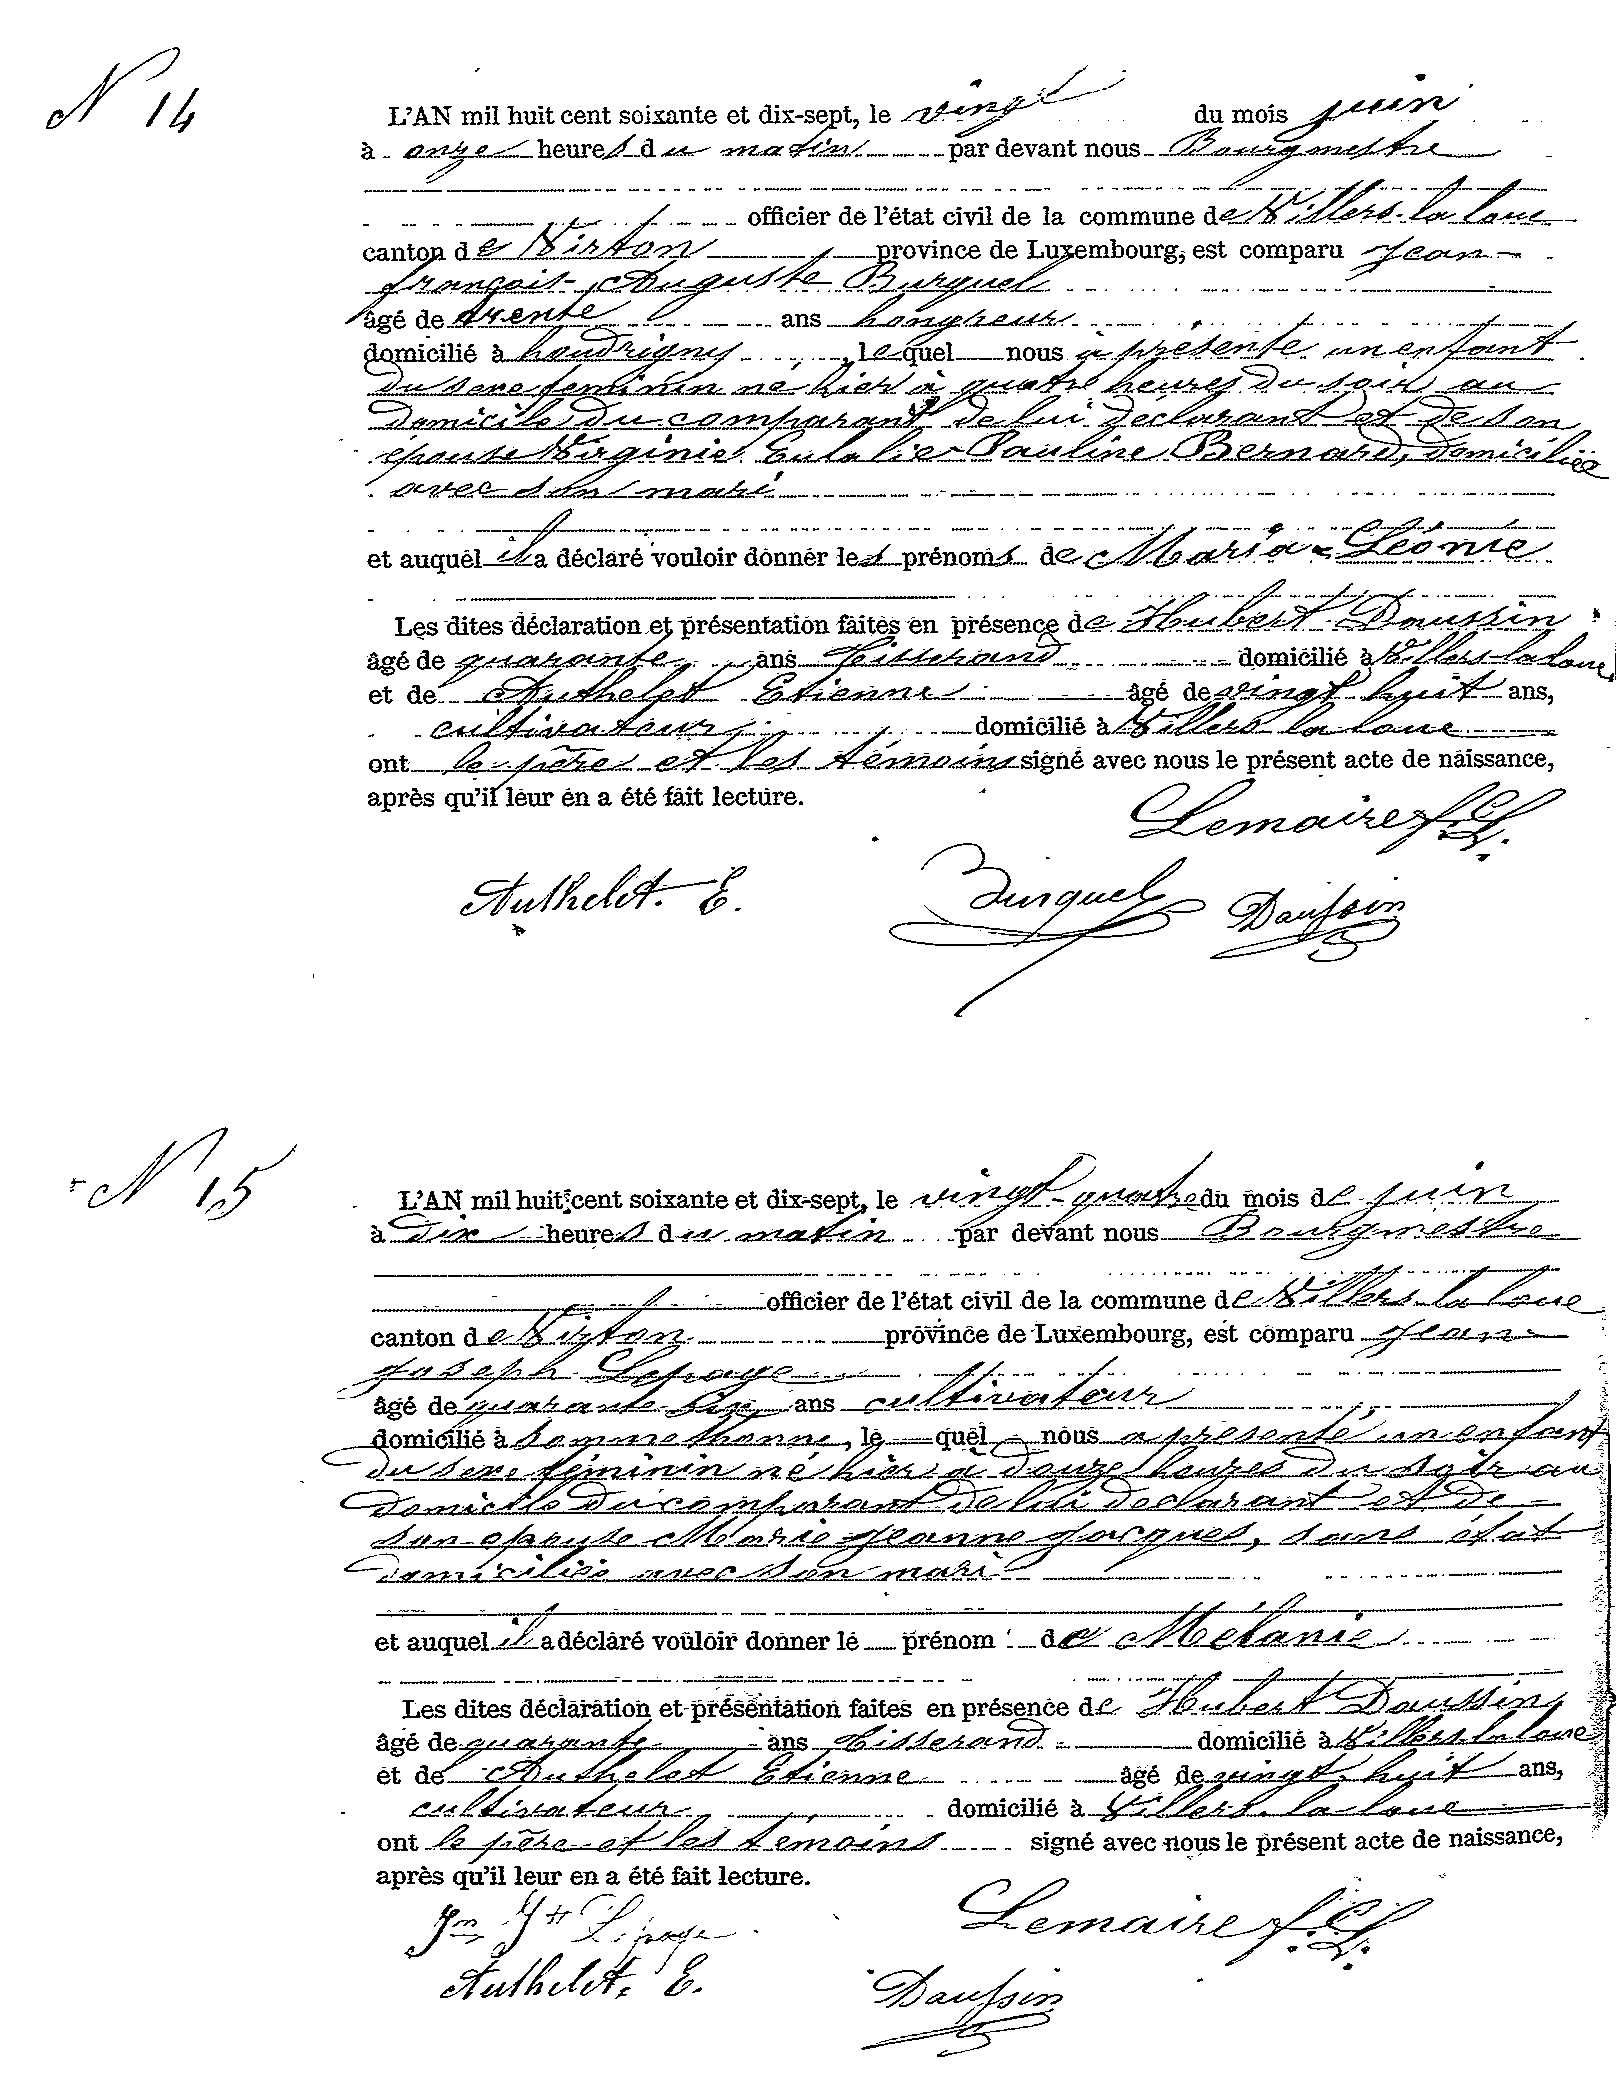 N 14
L'AN mil huit cent soixante et dix-sept, le vingt du mois juin
à onze heures du matin par devant nous Bourgmestre
officier de l'état civil de la commune de Villers-la-loue
canton de Virton province de Luxembourg, est comparu Jean-
françois-Auguste Burquel
âgé de trente ans hongreur
domicilié à houdrigny, le quel nous a présenté un enfant
du sexe féminin né hier à quatre heures du soir au
domicile du comparant de lui déclarant et de son
épouse Virginie Eulalie Pauline Bernard, domiciliée
avec son mari
et auquel il a déclaré vouloir donner les prénoms de Maria-Léonie
Les dites déclaration et présentation faites en présence de Hubert Daussin
âgé de quarante ans tisserand domicilié à Villers-la loue
et de Authelet Etienne âgé de vingt huit ans,
cultivateur domicilié à Villers la loue
ont le père et les témoins signé avec nous le présent acte de naissance,
après qu'il leur en a été fait lecture.
Lemaire
Authelet. E. Burquel Daussin
N 15
L'AN mil huit cent soixante et dix-sept, le vingt-quatre du mois de juin
à dix heures du matin par devant nous Bourgmestre
officier de l'état civil de la commune de Villers-la loue
canton de Virton province de Luxembourg, est comparu Jean-
Joseph Lepage
âgé de quarante six ans cultivateur
domicilié à Sommethonne, le quel nous a présenté un enfant
du sexe féminin né hier à douze heures du soir au
domicile du comparant de lui déclarant et de
son épouse Marie Jeanne Jacques, sans état
domiciliée avec son mari
et auquel il a déclaré vouloir donner le prénom de Mélanie
Les dites déclaration et présentation faites en présence de Hubert Daussin,
âgé de quarante ans tisserand domicilié à Villers la loue
et de Authelet Etienne âgé de vingt huit ans,
cultivateur domicilié à Villers-la loue
ont le père et les témoins signé avec nous le présent acte de naissance,
après qu'il leur en a été fait lecture.
Jn Jh Lepage Lemaire
Authelet. E. Daussin